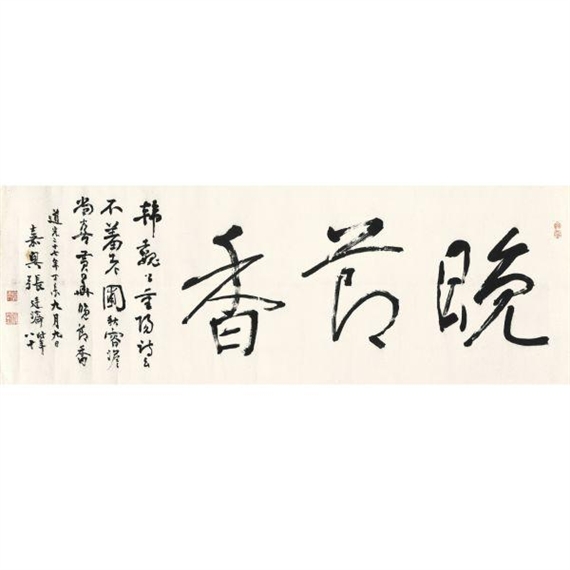 晚節香
韓魏公重陽詩云
不羞老圃秋容澹
尚看黃華晚節香
道光二十七年丁未九月九日
嘉興張廷濟時年八十